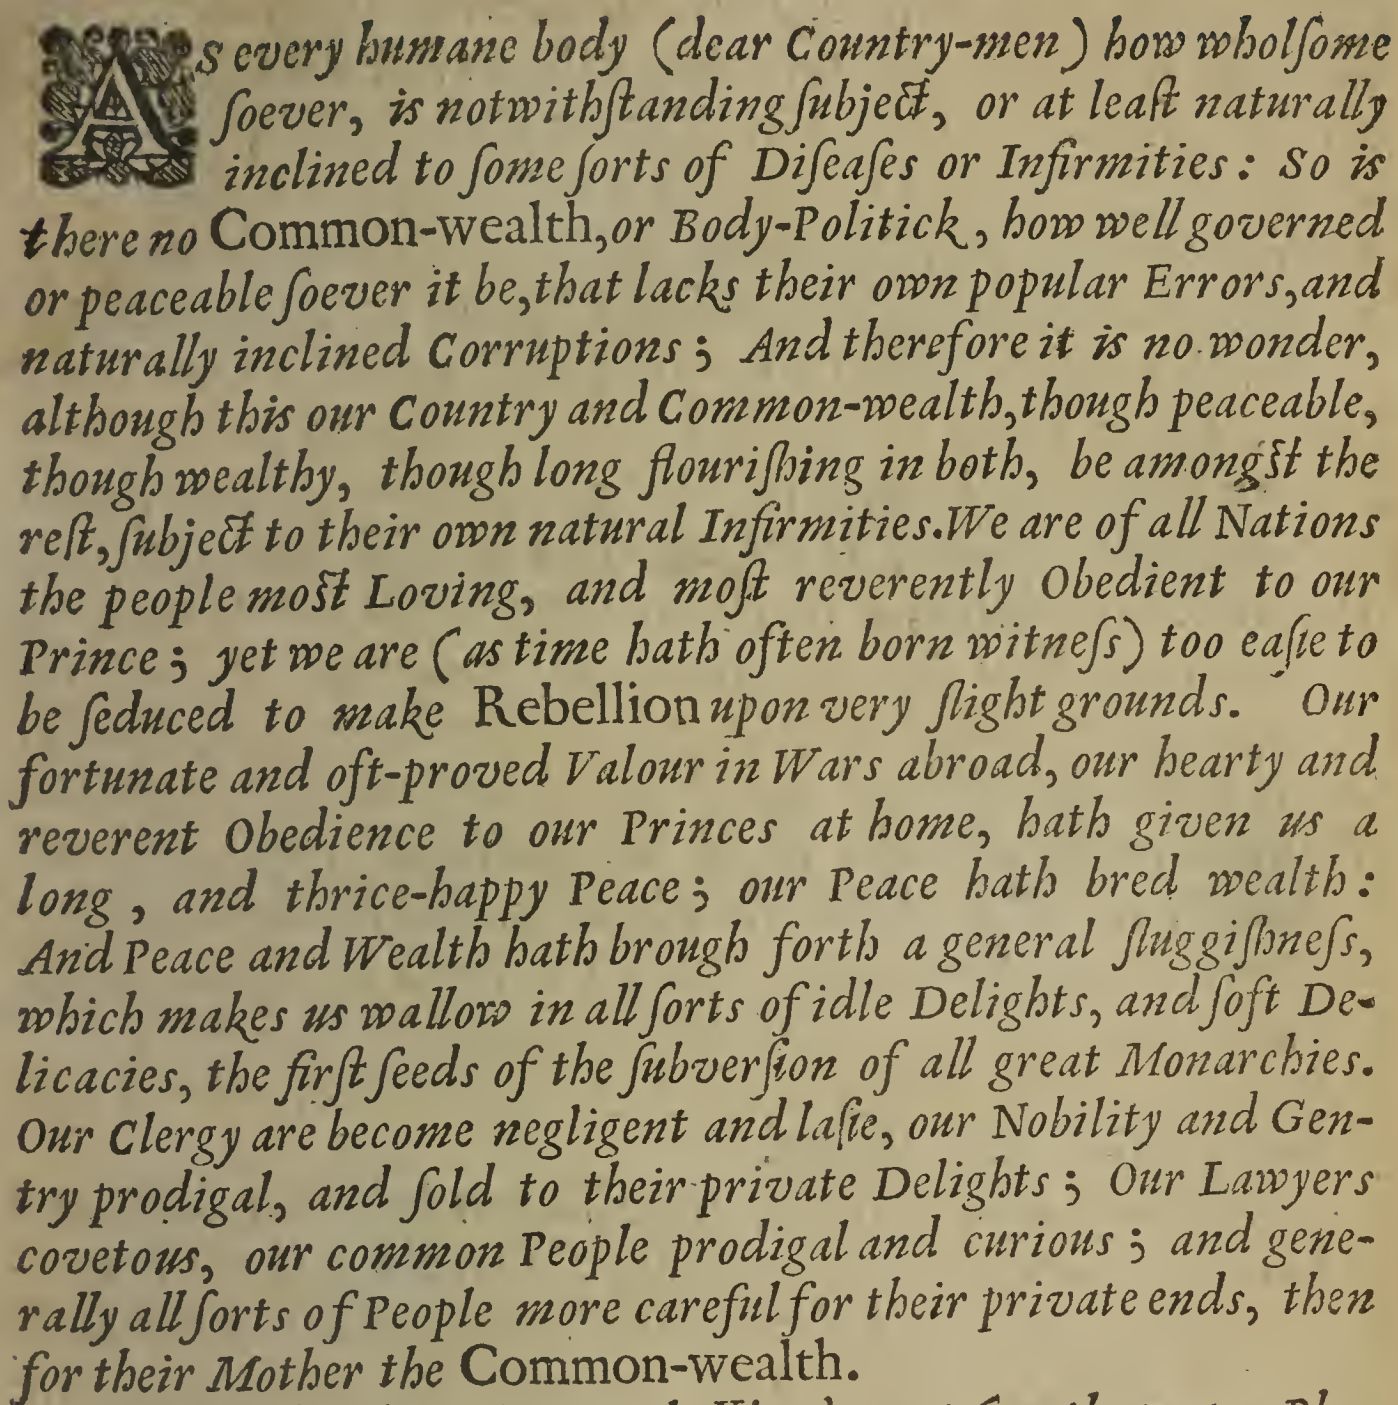 As every humane body (dear Country-men) how wholſome
ſoever, is notwithſtanding ſubject, or at leaſt naturally
inclined to ſome ſorts of Diſeaſes or Infirmities: So is
there no Common-wealth, or Body-Politick, how well governed
or peaceable ſoever it be, that lacks their own popular Errors, and
naturally inclined Corruptions; And therefore it is no wonder,
although this our Country and Common-wealth, though peaceable,
though wealthy, though long flouriſhing in both, be amongſt the
reſt, ſubject to their own natural Infirmities. We are of all Nations
the people moſt Loving, and moſt reverently Obedient to our
Prince; yet we are (as time hath often born witneſs) too eaſie to
be ſeduced to make Rebellion upon very ſlight grounds. Our
fortunate and oft-proved Valour in Wars abroad, our hearty and
reverent Obedience to our Princes at home, hath given us a
long, and thrice-happy Peace; our Peace hath bred wealth:
And Peace and Wealth hath brough forth a general ſluggiſhneſs,
which makes us wallow in all ſorts of idle Delights, and ſoft De-
licacies, the firſt ſeeds of the ſubverſion of all great Monarchies.
Our Clergy are become negligent and laſie, our Nobility and Gen-
try prodigal, and ſold to their private Delights; Our Lawyers
covetous, our common People prodigal and curious; and gene-
rally all ſorts of People more careful for their private ends, then
for their Mother the Common-wealth.